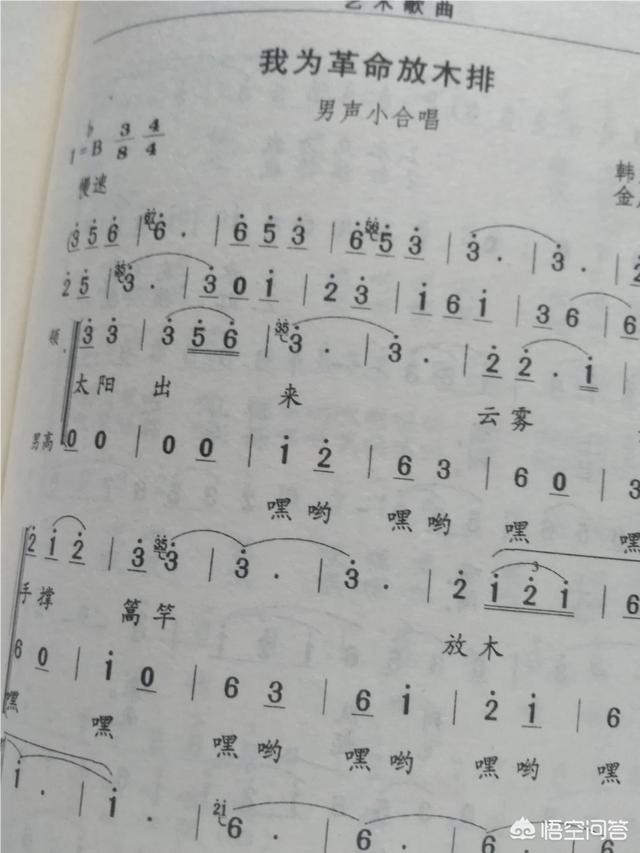 艺术歌曲
我为革命放木排
男声小合唱
1=♭B 3/8 4/4
韩
金
慢速
(3 5 6 | 6 . | 6 5 3 | 6 5 3 | 3 . | 3 . | 2
2 5 | 3 . | 3 0 1 | 2 3 | 1 6 1 | 3 6 | 6
领 3 3 | 3 5 6 | 3 . | 3 . | 2 2 . 1 |
太阳 出 来 云雾
男高 0 0 | 0 0 | 1 2 | 6 3 | 6 0 | 3
嘿哟 嘿哟 嘿 嘿
2 1 2 | 3 3 | 3 . | 3 . | 2 1 2 1 | 6
手撑 篙竿 放木
6 0 | 1 0 | 6 3 | 6 1 | 2 1 | 6
嘿 嘿 嘿哟 嘿哟 嘿哟 嘿
1 . | 1 . | 6 . | 6 . | 6 . | 6
悟空问答